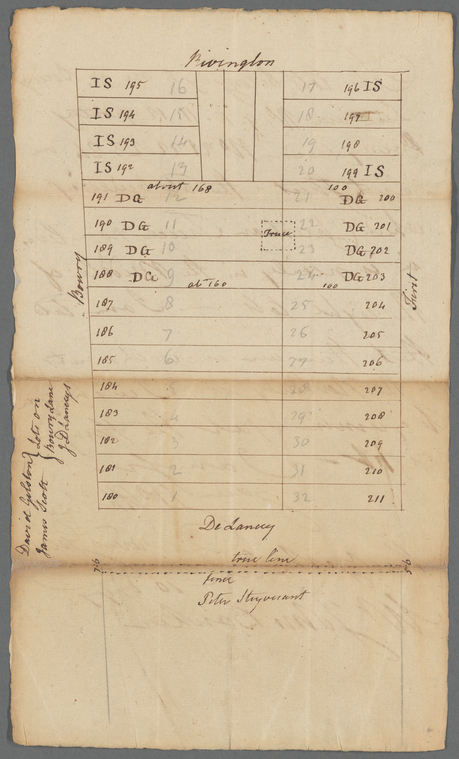 Rivington
IS 195 16 17 196 IS
IS 194 15 18 197
IS 193 14 19 198
IS 192 13 20 199 IS
about 168 100
191 DG 12 21 DG 200
190 DG 11 22 DG 201
189 DG 10 23 DG 202
188 DG 9 24 DG 203
abt 160 100
187 8 25 204
186 7 26 205
185 6 27 206
184 5 28 207
183 4 29 208
182 3 30 209
181 2 31 210
180 1 32 211
Bowry
First
David Gelston
James Scott
Lots on
Bowry Lane
DeLancey
true line
fence
Peter Stuyvesant